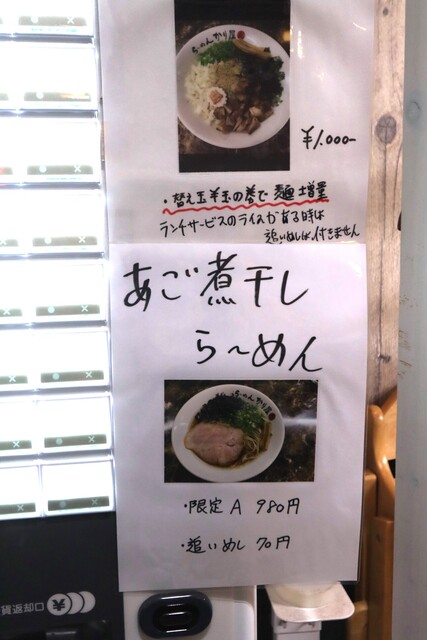 ¥1.000-
・替え玉半玉の券で麺増量
ランチサービスのライスがある時は
追いめしは付きません
あご煮干し
ら〜めん
・限定 A 980円
・追いめし 70円
貨返却口